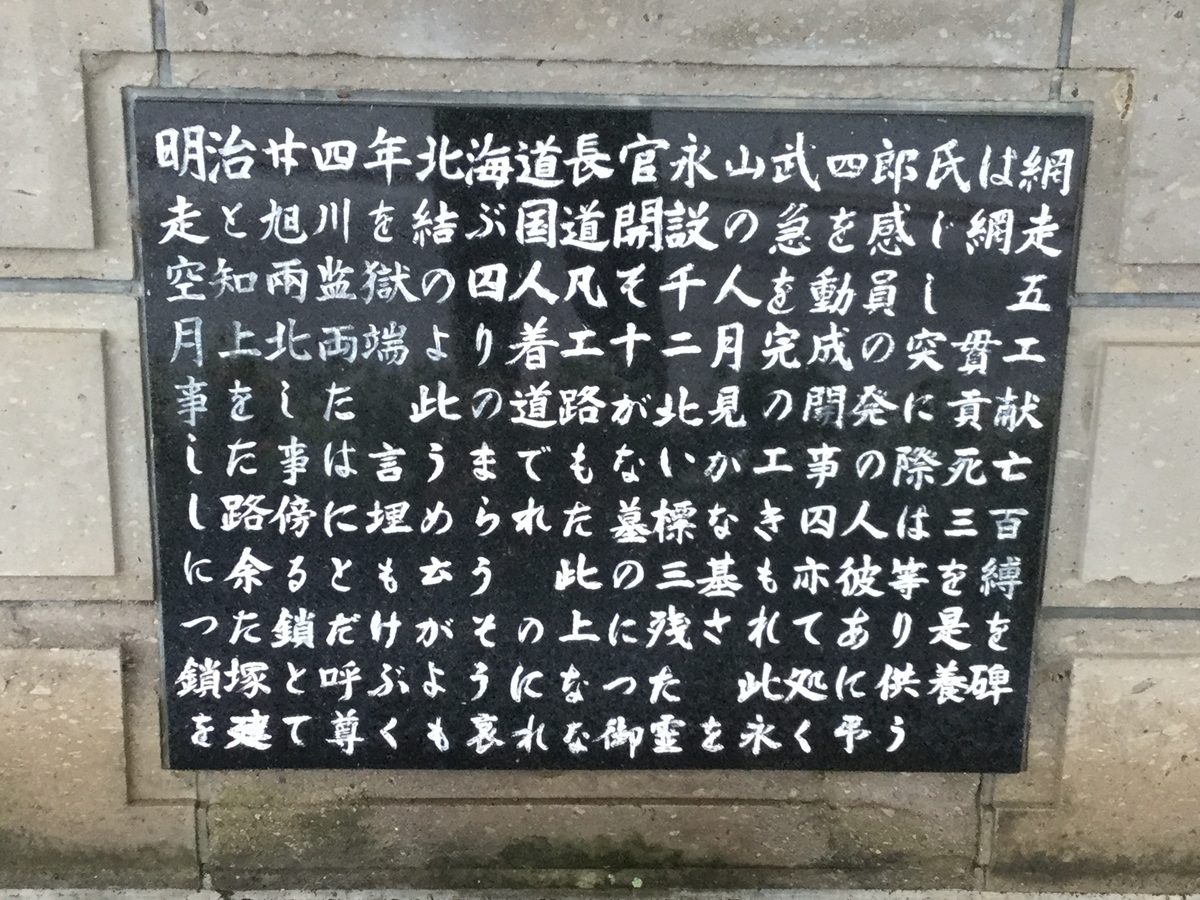 明治廿四年北海道長官永山武四郎氏は網
走と旭川を結ぶ国道開設の急を感じ網走
空知兩监獄の囚人凡そ千人を動員し　五
月上北両端より着工十二月完成の突貫工
事をした　此の道路が北見の開発に貢献
した事は言うまでもないが工事の際死亡
し路傍に埋められた墓標なき囚人は三百
に余るとも云う　此の三基も亦彼等を縛
つた鎖だけがその上に残されてあり是を
鎖塚と呼ぶようになつた　此処に供養碑
を建て尊くも哀れな御霊を永く弔う